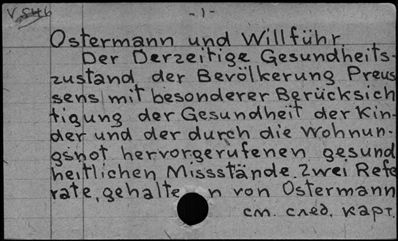 V 5446
- 1 -
Ostermann und Willführ
Der Derzeitige Gesundheits-
zustand der Bevölkerung Preus
sens mit besonderer Berücksich
tigung der Gesundheit der Kin-
der und der durch die Wohnun-
gsnot hervorgerufenen gesund
heitlichen Missstände. Zwei Refe
rate, gehalte n von Ostermann
см. след. карт.